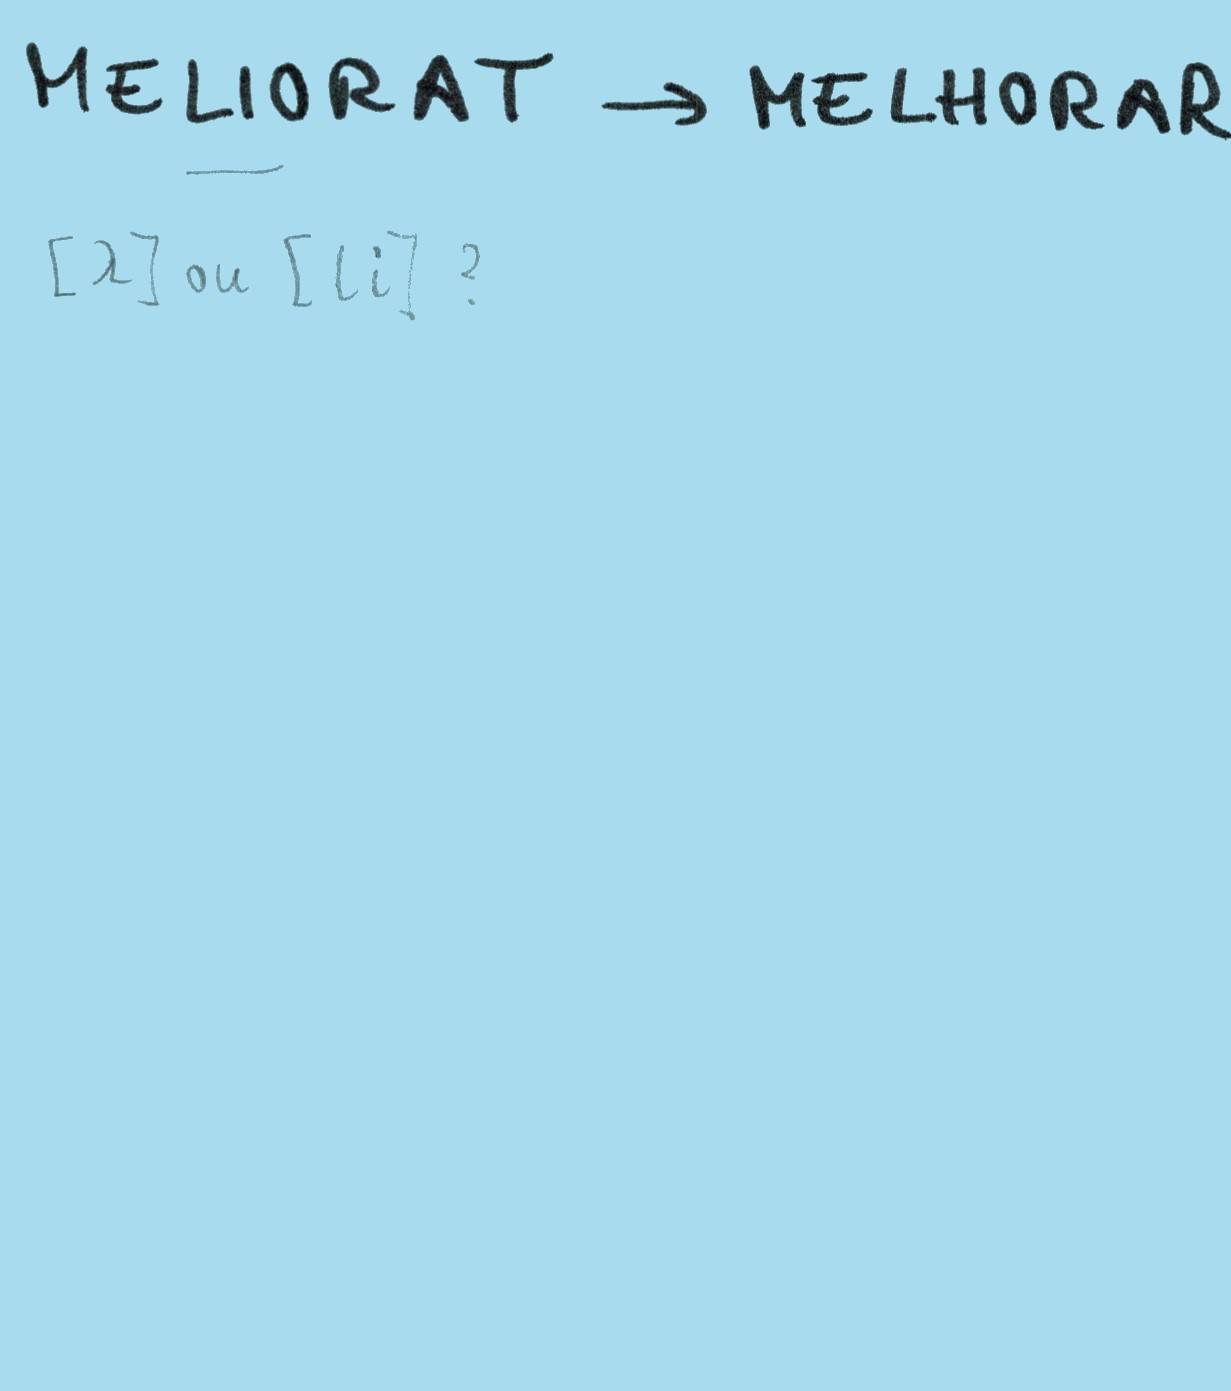 MELIORAT → MELHORAR
[λ] ou [li] ?